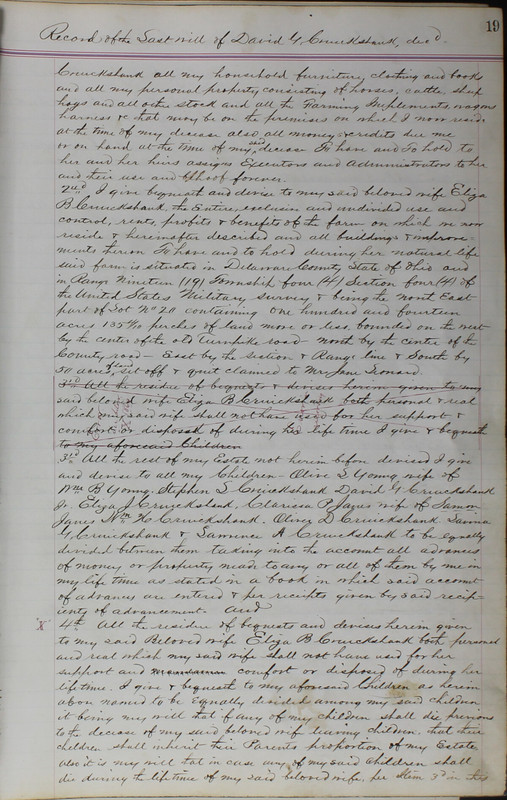 19
Record of the Last will of David G. Cruickshank, dec'd.
Cruickshank all my household furniture, clothing and books
and all my personal property consisting of horses, cattle, sheep
hogs and all other stock and all the Farming Implements, wagons
harness & that may be on the premises on which I now reside
at the time of my decease also all money & credits due me
or on hand at the time of my said decease To have and To hold to
her and her heirs assigns Executors and Administrators to her
and their use and behoof forever.
2nd I give bequeath and devise to my said beloved wife Eliza
B. Cruickshank, the Entire, exclusive and undivided use and
control, rents, profits & benefits of the farm on which we now
reside & hereinafter described and all buildings & improve-
ments thereon To have and to hold during her natural life
said farm is situated in Delaware County, State of Ohio and
in Range Nineteen (19) Township four (4) Section four (4) of
the United States Military survey & being the North East
part of Lot No 20 containing One hundred and fourteen
acres 135 perches of land more or less, bounded on the west
by the center of the old Turnpike road - North by the center of the
County road - East by the section & Range line & South by
50 acres of land set off & quit claimed to Mrs Jane Leonard.
3rd All the residue of bequests & devises herein given to my
said beloved wife Eliza B Cruickshank both personal & real
which my said wife shall not have used for her support &
comfort or disposed of during her life time I give & bequeath
to my aforesaid Children
3rd All the rest of my Estate not herein before devised I give
and devise to all my Children - Olive S Young wife of
Wm B Young. Stephen S Cruickshank David G Cruickshank
Jr. Eliza J Cruickshank, Clarissa P Janes wife of
Janes Wm H Cruickshank. Oliver D Cruickshank
G. Cruickshank & Lawrence A Cruickshank to be equally
divided between them taking into the account all advances
of money or property made to any or all of them by me in
my life time as stated in a book in which said account
of advances are entered & per receipts given by said recip-
ients of advancement. And
X 4th All the residue of bequests and devises herein given
to my said Beloved wife Eliza B Cruickshank both personal
and real which my said wife shall not have used for her
support and comfort or disposed of during her
lifetime. I give & bequeath to my aforesaid Children as herein
above named to be Equally divided among my said children
it being my will that if any of my children shall die previous
to the decease of my said beloved wife leaving children, that their
children shall inherit their Parents proportion of my Estate
also it is my will that in case any of my said Children shall
die during the life time of my said beloved wife, per Item 3rd in this